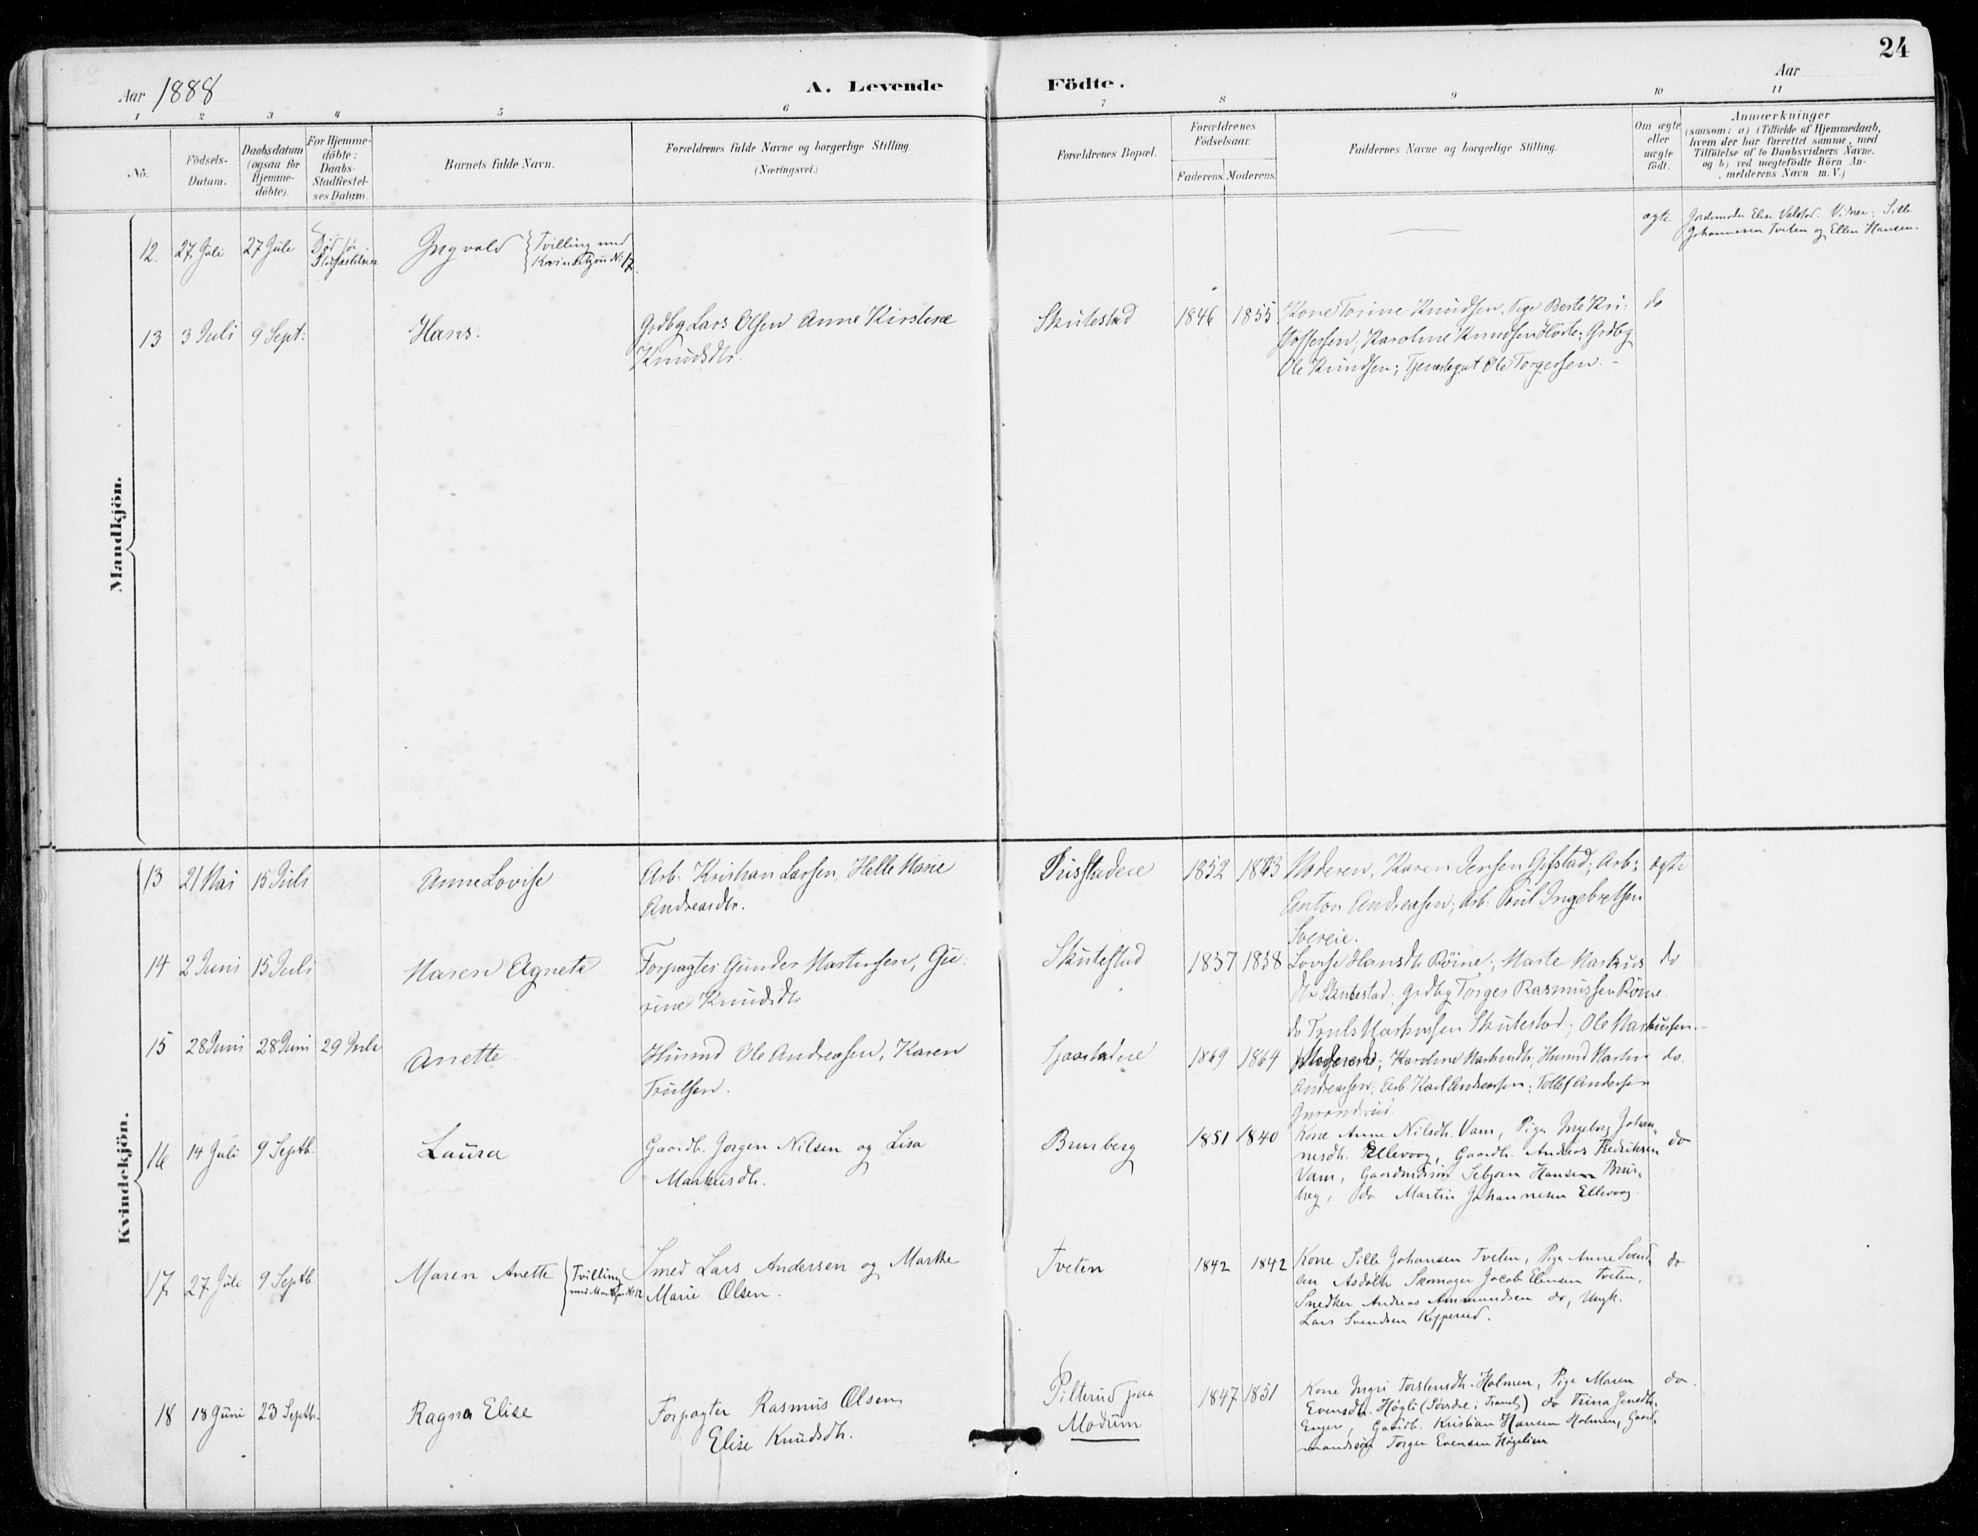 24
Aar 1888
A. Levende Födte.
Aar
1 2 3 4 5 6 7 8 9 10 11
No.
Födsels-Datum.
Daabsdatum (ogsaa for Hjemmedöbte).
For Hjemmedöbte: Daabs-Stadfæstelses Datum.
Barnets fulde Navn.
Forældrenes fulde Navne og borgerlige Stilling. (Næringsvei.)
Forældrenes Bopæl.
Forældrenes Födselsaar.
Faderens. Moderens.
Faddernes Navne og borgerlige Stilling.
Om ægte eller uægte födt.
Anmærkninger (saasom: a) i Tilfælde af Hjemmedaab, hvem der har forrettet samme, med Tilföielse af to Daabsvidners Navne, og b) ved uægtefödte Börn Anmelderens Navn m. V.)
Mandkjön.
12. 27 Juli 27 Juli Död før Stadfæstelsen
Ingvald {Tvilling med Kvindekjøn No 17.
ægte
Jordemoder Elise Valstad. Vidner: Sille
Johannesen Tveten og Ellen Hansen.
13 3 Juli 9 Sept:
Hans.
Grdbg Lars Olsen Anne Kirstine
Knudsdtr.
Skutestad 1846 1855
Kone Torine Knudsen, Pige Berte Kri-
stoffersen, Karoline Knudsen Horte; Grdbg
Ole Knudsen; Tjenestegut Ole Torgersen. -
do
Kvindekjön.
13 21 Mai 15 Juli
Anne Lovise
Arb. Kristian Larsen, Helle Marie
Andreasdtr.
1852 1863
Moderen, Karen Jensen Gifstad; Arb:
Anton Andreasen; Arb. Poul Ingebretsen
Svereie.
ægte
14 2 Juni 15 Juli
Maren Agnete
Forpagter Gunder Mortensen, Gu-
rine Knudsdtr
Skutestad 1857 1858
Lovise Hansdtr Røine; Marte Markus
dtr Skutestad; Grdbg Torger Rasmussen Roine
do Truls Markussen Skutestad; Ole Markussen.
do
15 28 Juni 28 Juni 29 Juli
Anette
Husmd Ole Andreasen, Karen
Trulsen.
1869 1864
Moderen; Karoline Markusdtr; Husmd Martin
Andreasen; Arb Karl Andreasen; Tollef Andersen
do.
16 14 Juli 9 Septb.
Laura
Gaardb. Jørgen Nilsen og Lisa
Markusdtr.
Brunberg 1851 1840
Kone Anne Nilsdtr. Vam, Pige Ingeborg Johan-
nesdtr. Ellevog, Gaardb. Andreas Fredriksen
Vam, Gaardmdssøn Sebjørn Hansen Brun-
berg, do Martin Johannesen Ellevog.
do
17. 27 Juli 9 Septb
Maren Anette {Tvilling med Mandkjøn No 12
Smed Lars Andersen og Marthe
Marie Olsen.
Tveten 1842 1842
Kone Sille Johansen Tveten, Pige Anne Svend-
sen Asdøla Skomager Jacob Ellensen Tveten,
Snedker Andreas Ammundsen do, Ungk.
Lars Svendsen Kopperud.
do
18 18 Juni 23 Septb.
Ragna Elise
Forpagter Rasmus Olsen,
Elise Knudsdtr.
Pilterud paa
Modum
1847 1851
Kone Ingri Torstensdtr. Holmen, Pige Maren
Evensdtr. Høgli do Trina Jensdtr.
Enger, Gaardb. Kristian Hansen Holmen, Gaard-
mandssøn Torger Evensen Høgelien
do.